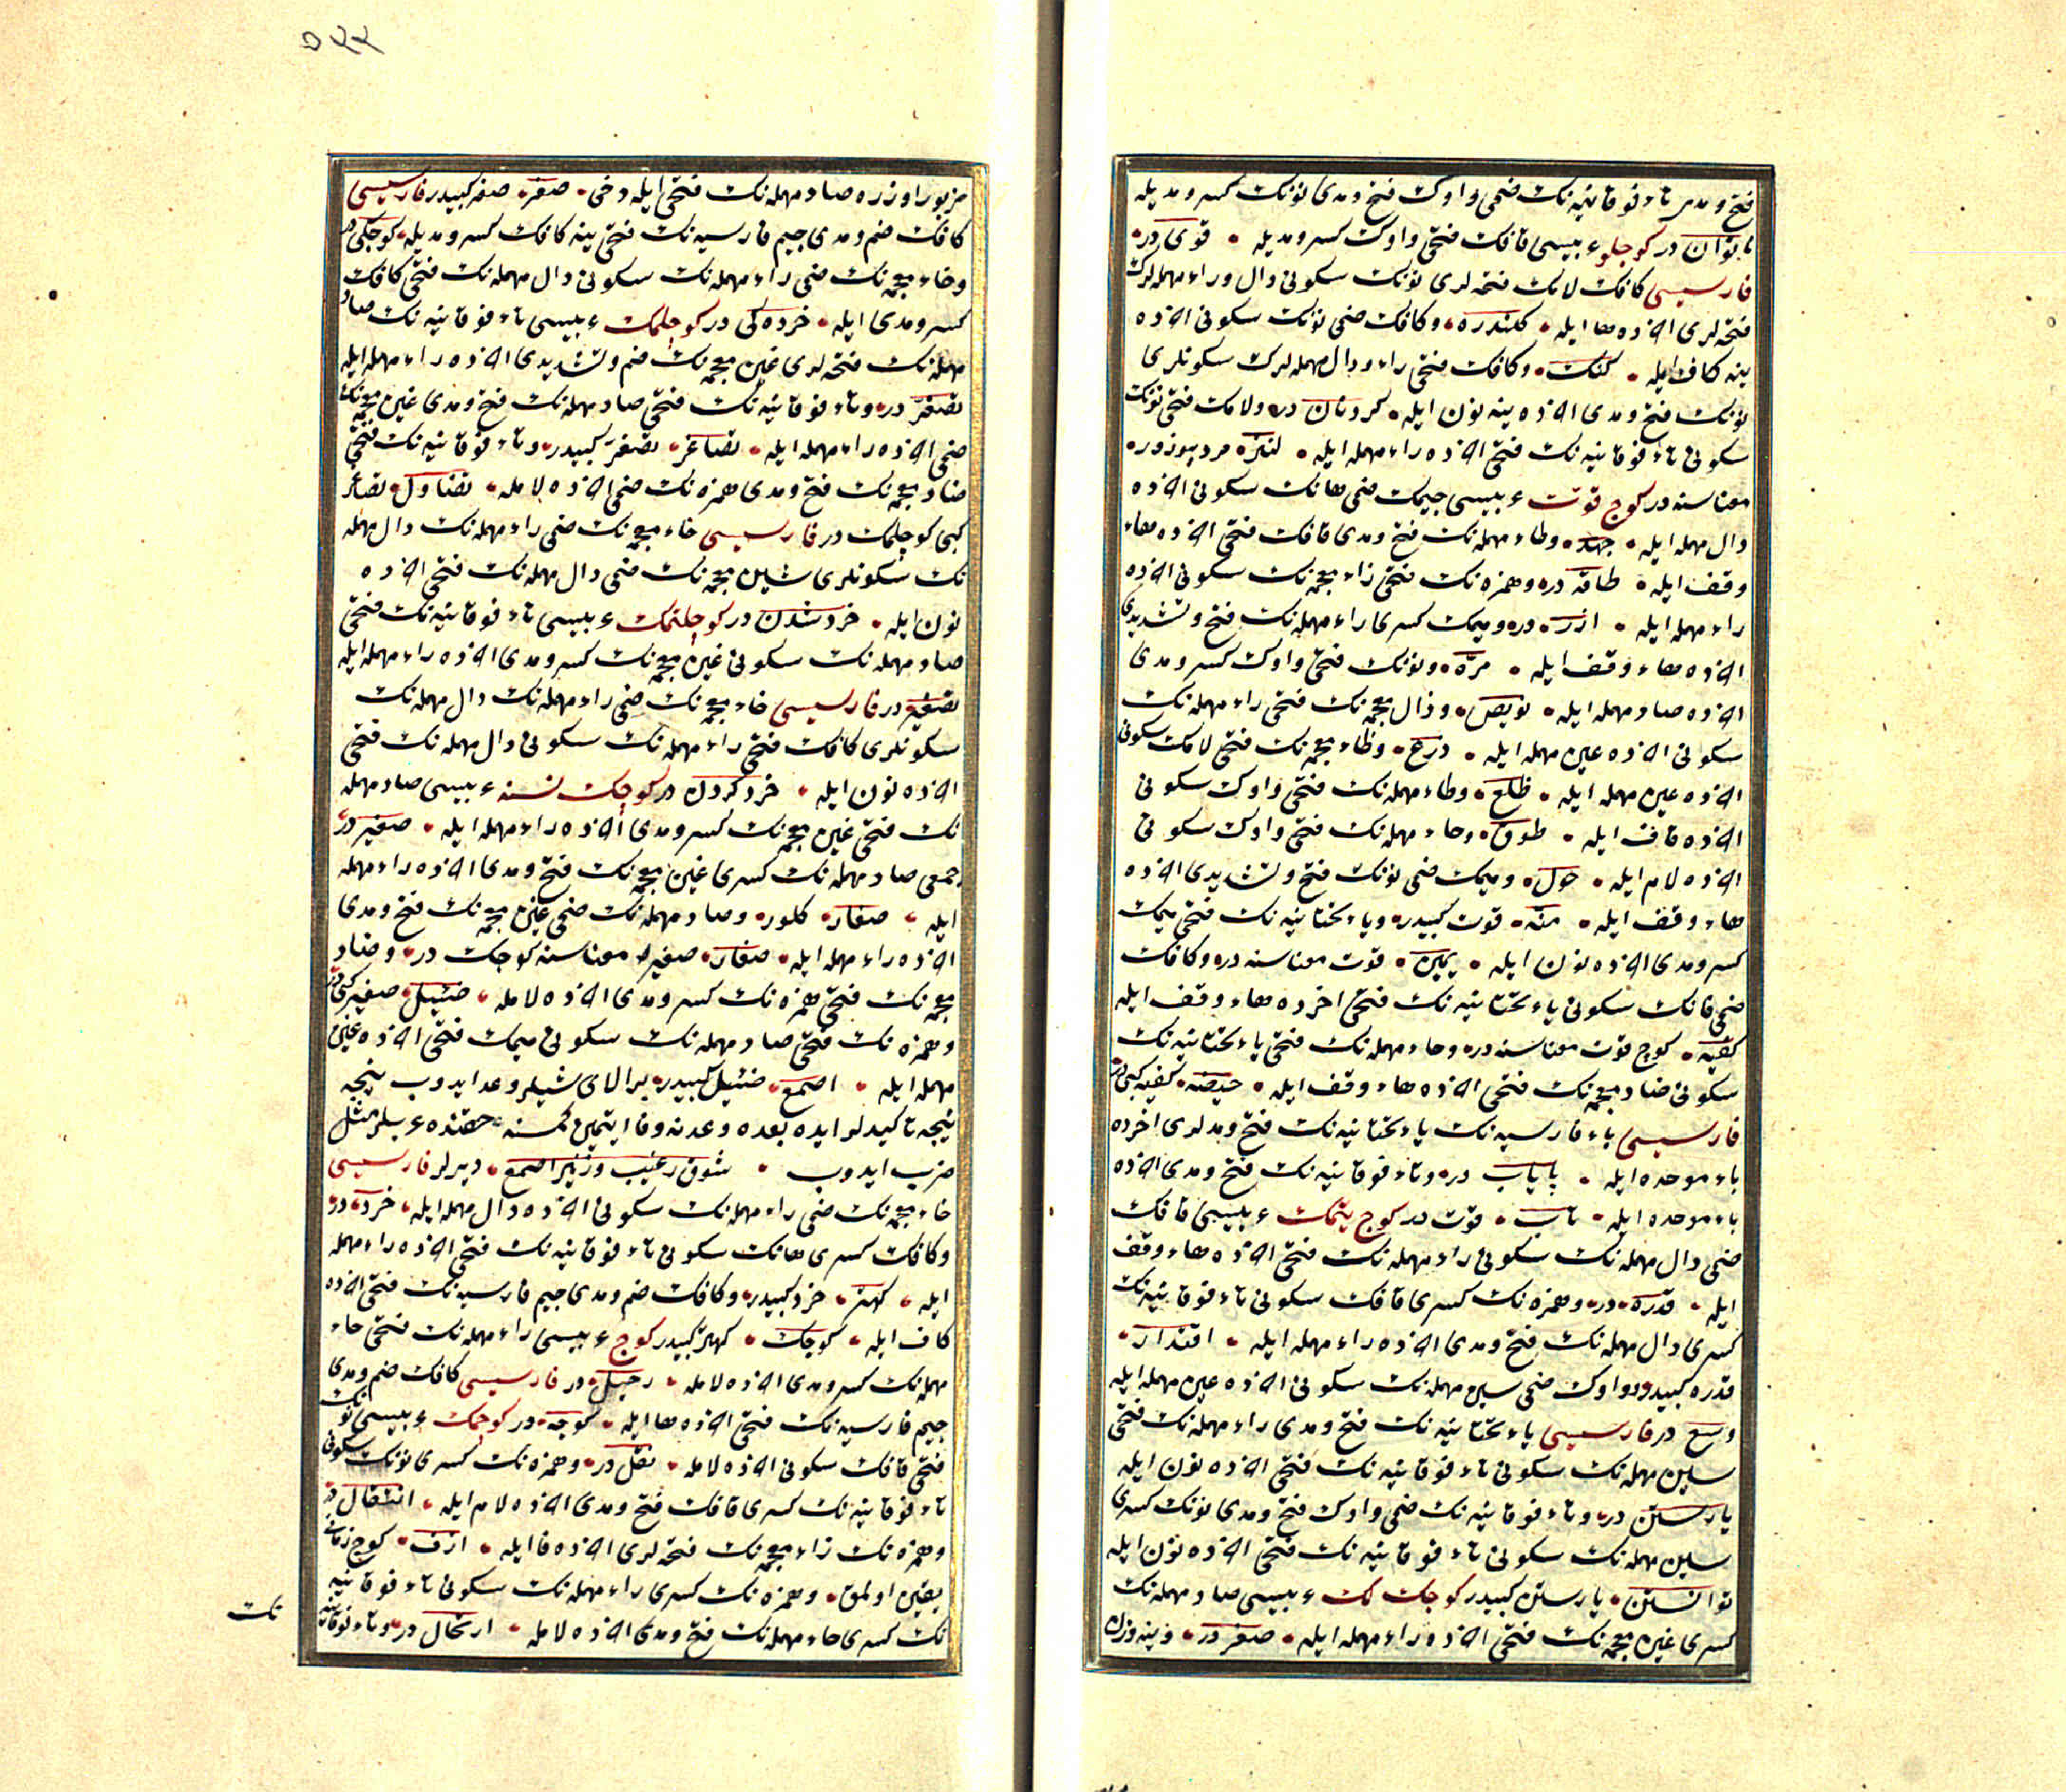 فتح و مدى تاء فوقانيه نك ضمى واوك فتح و مدى نونك كسر و مديله
ناتوان در كوجلو عربيسى قافك فتحى واوك كسر و مديله قوى در
فارسيسى كافك لامك فتحه لرى نونك سكونى دال و راء مهمله لرك
فتحه لرى آخرده ها ايله كلندره و كافك ضمى نونك سكونى آخرده
ينه كاف ايله كنك و كافك فتحى راء و دال مهمله لرك سكونلرى
نونك فتح و مدى آخرده ينه نون ايله كردنان در و لامك فتحى نونك
سكونى تاء فوقانيه نك فتحى آخرده راء مهمله ايله لنتره مرد پرزور
معناسنه در كوج قوت عربيسى جيمك ضمى هانك سكونى آخرده
دال مهمله ايله جهد و طاء مهمله نك فتح و مدى قافك فتحى آخرده هاء
وقف ايله طاقه در و همزه نك فتحى زاء معجمه نك سكونى آخرده
راء مهمله ايله ازر در و ميمك كسرى راء مهمله نك فتح و تشديدى
آخرده هاء وقف ايله مره و نونك فتحى واوك كسر و مدى
آخرده صاد مهمله ايله نويص و ذال معجمه نك فتحى راء مهمله نك
سكونى آخرده عين مهمله ايله ذرع و ظاء معجمه نك فتحى لامك سكونى
آخرده عين مهمله ايله ظلع و طاء مهمله نك فتحى واوك سكونى
آخرده قاف ايله طوق و حاء مهمله نك فتحى واوك سكونى
آخرده لام ايله حول و ميمك ضمى نونك فتح و تشديدى آخرده
هاء وقف ايله منه قوت كبيدر و ياء تحتانيه نك فتحى ميمك
كسر و مدى آخرده نون ايله يمين قوت معناسنه در و كافك
ضمى فانك سكونى ياء تحتانيه نك فتحى آخرده هاء وقف ايله
كفيه كوج قوت معناسنه در و حاء مهمله نك فتحى ياء تحتانيه نك
سكونى ضاد معجمه نك فتحى آخرده هاء وقف ايله حيضه كفيه كبى در
فارسيسى باء فارسيه نك ياء تحتانيه نك فتح و مدلرى آخرده
باء موحده ايله پاياب در و تاء فوقانيه نك فتح و مدى آخرده
باء موحده ايله تاب قوت در كوج يتمك عربيسى قافك
ضمى دال مهمله نك سكونى راء مهمله نك فتحى آخرده هاء وقف
ايله قدره در و همزه نك كسرى قافك سكونى تاء فوقانيه نك
كسرى دال مهمله نك فتح و مدى آخرده راء مهمله ايله اقتدار
قدره كبيدر و واوك ضمى سين مهمله نك سكونى آخرده عين مهمله ايله
وسع در فارسيسى ياء تحتانيه نك فتح و مدى راء مهمله نك فتحى
سين مهمله نك سكونى تاء فوقانيه نك فتحى آخرده نون ايله
يارستن در و تاء فوقانيه نك ضمى واوك فتح و مدى نونك كسرى
سين مهمله نك سكونى تاء فوقانيه نك فتحى آخرده نون ايله
توانستن يارستن كبيدر كوجك لك عربيسى صاد مهمله نك
كسرى غين معجمه نك فتحى آخرده راء مهمله ايله صغر در و ينه وزن
٥٤٤
مزبور اوزره صاد مهمله نك فتحى ايله دخى صغر صغر كبيدر فارسيسى
كافك ضم و مدى جيم فارسيه نك فتحى ينه كافك كسر و مديله كوچكى در
و خاء معجمه نك ضمى راء مهمله نك سكونى دال مهمله نك فتحى كافك
كسر و مدى ايله خرده كى در كوجلمك عربيسى تاء فوقانيه نك صاد
مهمله نك فتحه لرى غين معجمه نك ضم و تشديدى آخرده راء مهمله ايله
تصغر در و تاء فوقانيه نك فتحى صاد مهمله نك فتح و مدى غين معجمه نك
ضمى آخرده راء مهمله ايله تصاغر تصغر كبيدر و تاء فوقانيه نك فتحى
ضاد معجمه نك فتح و مدى همزه نك ضمى آخرده لامله تضاؤل تصاغر
كبى كوجلمك در فارسيسى خاء معجمه نك ضمى راء مهمله نك دال مهمله
نك سكونلرى شين معجمه نك ضمى دال مهمله نك فتحى آخرده
نون ايله خرد شدن در كوجلتمك عربيسى تاء فوقانيه نك فتحى
صاد مهمله نك سكونى غين معجمه نك كسر و مدى آخرده راء مهمله ايله
تصغير در فارسيسى خاء معجمه نك ضمى راء مهمله نك دال مهمله نك
سكونلرى كافك فتحى راء مهمله نك سكونى دال مهمله نك فتحى
آخرده نون ايله خرد كردن در كوجك نسنه عربيسى صاد مهمله
نك فتحى غين معجمه نك كسر و مدى آخرده راء مهمله ايله صغير در
جمعى صاد مهمله نك كسرى غين معجمه نك فتح و مدى آخرده راء مهمله
ايله صغار كلور و صاد مهمله نك ضمى غين معجمه نك فتح و مدى
آخرده راء مهمله ايله صغار صغير معناسنه كوجك در و ضاد
معجمه نك فتحى همزه نك كسر و مدى آخرده لامله ضئيل صغير كبى در
و همزه نك فتحى صاد مهمله نك سكونى ميمك فتحى آخرده عين
مهمله ايله اصمع ضئيل كبيدر بر الاى شيلر وعد ايدوب نيجه
نيجه تاكيدلر ايده بعده وعدنه وفا ايتمين كمسنه حقنده عربلر مثل
ضرب ايدوب شوق رغيب و زبير اصمع ديرلر فارسيسى
خاء معجمه نك ضمى راء مهمله نك سكونى آخرده دال مهمله ايله خرد در
و كافك كسرى هانك سكونى تاء فوقانيه نك فتحى آخرده راء مهمله
ايله كهتر خرد كبيدر و كافك ضم و مدى جيم فارسيه نك فتحى آخرده
كاف ايله كوچك كهتر كبيدر كوج عربيسى راء مهمله نك فتحى حاء
مهمله نك كسر و مدى آخرده لامله رحيل در فارسيسى كافك ضم و مدى
جيم فارسيه نك فتحى آخرده ها ايله كوچه در كوجمك عربيسى نونك
فتحى قافك سكونى آخرده لامله نقل در و همزه نك كسرى نونك سكونى
تاء فوقانيه نك كسرى قافك فتح و مدى آخرده لام ايله انتقال در
و همزه نك زاء معجمه نك فتحه لرى آخرده فا ايله ازف كوج زمانى
يقين اولمق و همزه نك كسرى راء مهمله نك سكونى تاء فوقانيه
نك كسرى حاء مهمله نك فتح و مدى آخرده لامله ارتحال در و تاء فوقانيه
نك